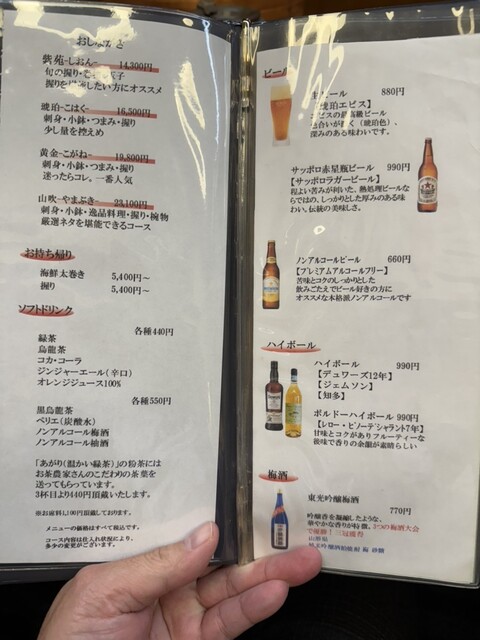 おしながき
紫苑-しおん- 14,300円
旬の握り・
握りを したい方にオススメ
琥珀-こはく- 16,500円
刺身・小鉢・つまみ・握り
少し量を控えめ
黄金-こがね- 19,800円
刺身・小鉢・つまみ・握り
迷ったらコレ。一番人気
山吹-やまぶき- 23,100円
刺身・小鉢・逸品料理・握り・椀物
厳選ネタを堪能できるコース
お持ち帰り
海鮮太巻き 5,400円～
握り 5,400円～
ソフトドリンク
各種440円
緑茶
烏龍茶
コカ・コーラ
ジンジャーエール(辛口)
オレンジジュース100%
各種550円
黒烏龍茶
ペリエ(炭酸水)
ノンアルコール梅酒
ノンアルコール柚酒
「あがり(温かい緑茶)」の粉茶には
お茶農家さんのこだわりの茶葉を
送ってもらっています。
3杯目より440円頂戴いたします。
※お席料1,100円頂戴しております。
メニューの価格はすべて税込です。
コース内容は仕入れ状況により、
多少の変更がございます。
ビール
生ビール 880円
【琥珀エビス】
エビスの最高級ビール
色合いが濃く(琥珀色)、
深みのある味わいです。
サッポロ赤星瓶ビール 990円
【サッポロラガービール】
程よい苦みが利いた、熱処理ビールな
らではの、しっかりとした厚みのある味
わい。伝統の美味しさ。
ノンアルコールビール 660円
【プレミアムアルコールフリー】
苦味とコクのしっかりした
飲みごたえでビール好きの方に
オススメな本格派ノンアルコールです
ハイボール
ハイボール 990円
【デュワーズ12年】
【ジェムソン】
【知多】
ボルドーハイボール 990円
【レロー・ピノーデシャラント7年】
甘味とコクがありフルーティーな
後味で香りの余韻が素晴らしい
梅酒
東光吟醸梅酒
770円
吟醸香を凝縮したような、
華やかな香りが特徴。3つの梅酒大会
で優勝！三冠獲得
山形県